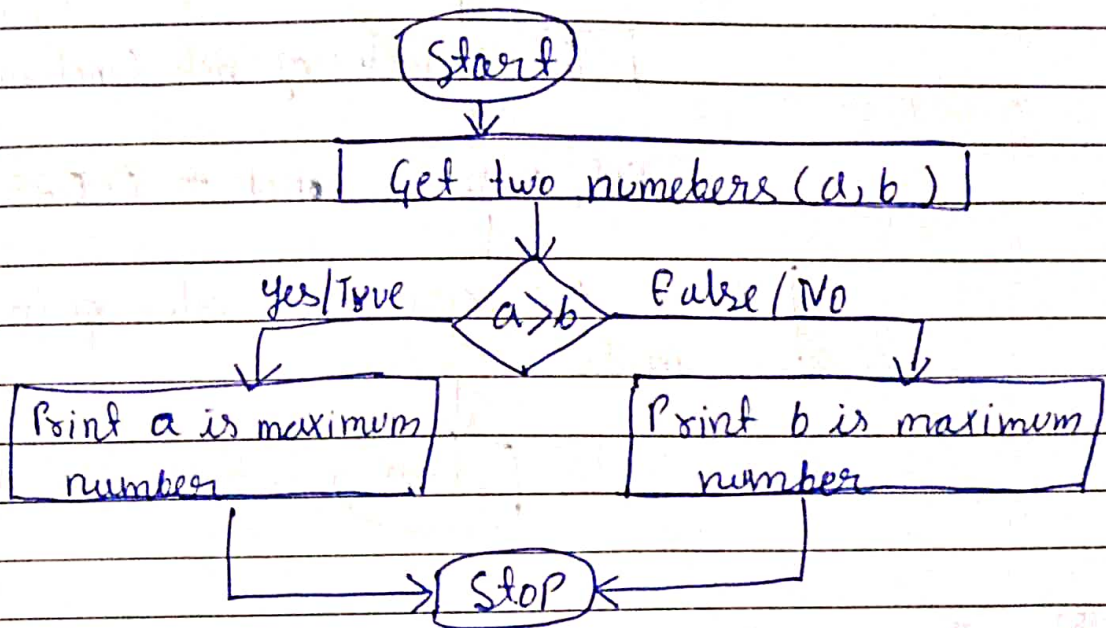 Start
Get two numebers (a, b)
Yes/True
a>b
False/No
Print a is maximum
number
Print b is maximum
number
Stop